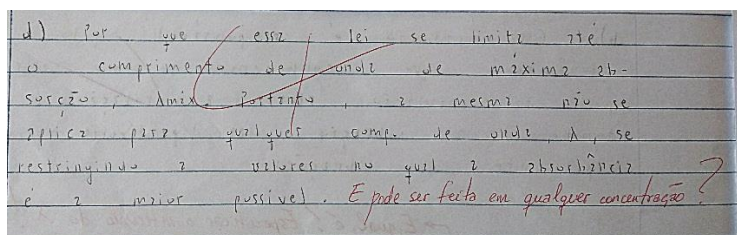 d) Por que essa lei se limita até
o comprimento de onda de máxima ab-
sorção, λmáx. Portanto, a mesma não se
aplica para qualquer comp. de onda, λ, se
restringindo a valores no qual a absorbância
é a maior possível. E pode ser feita em qualquer concentração?